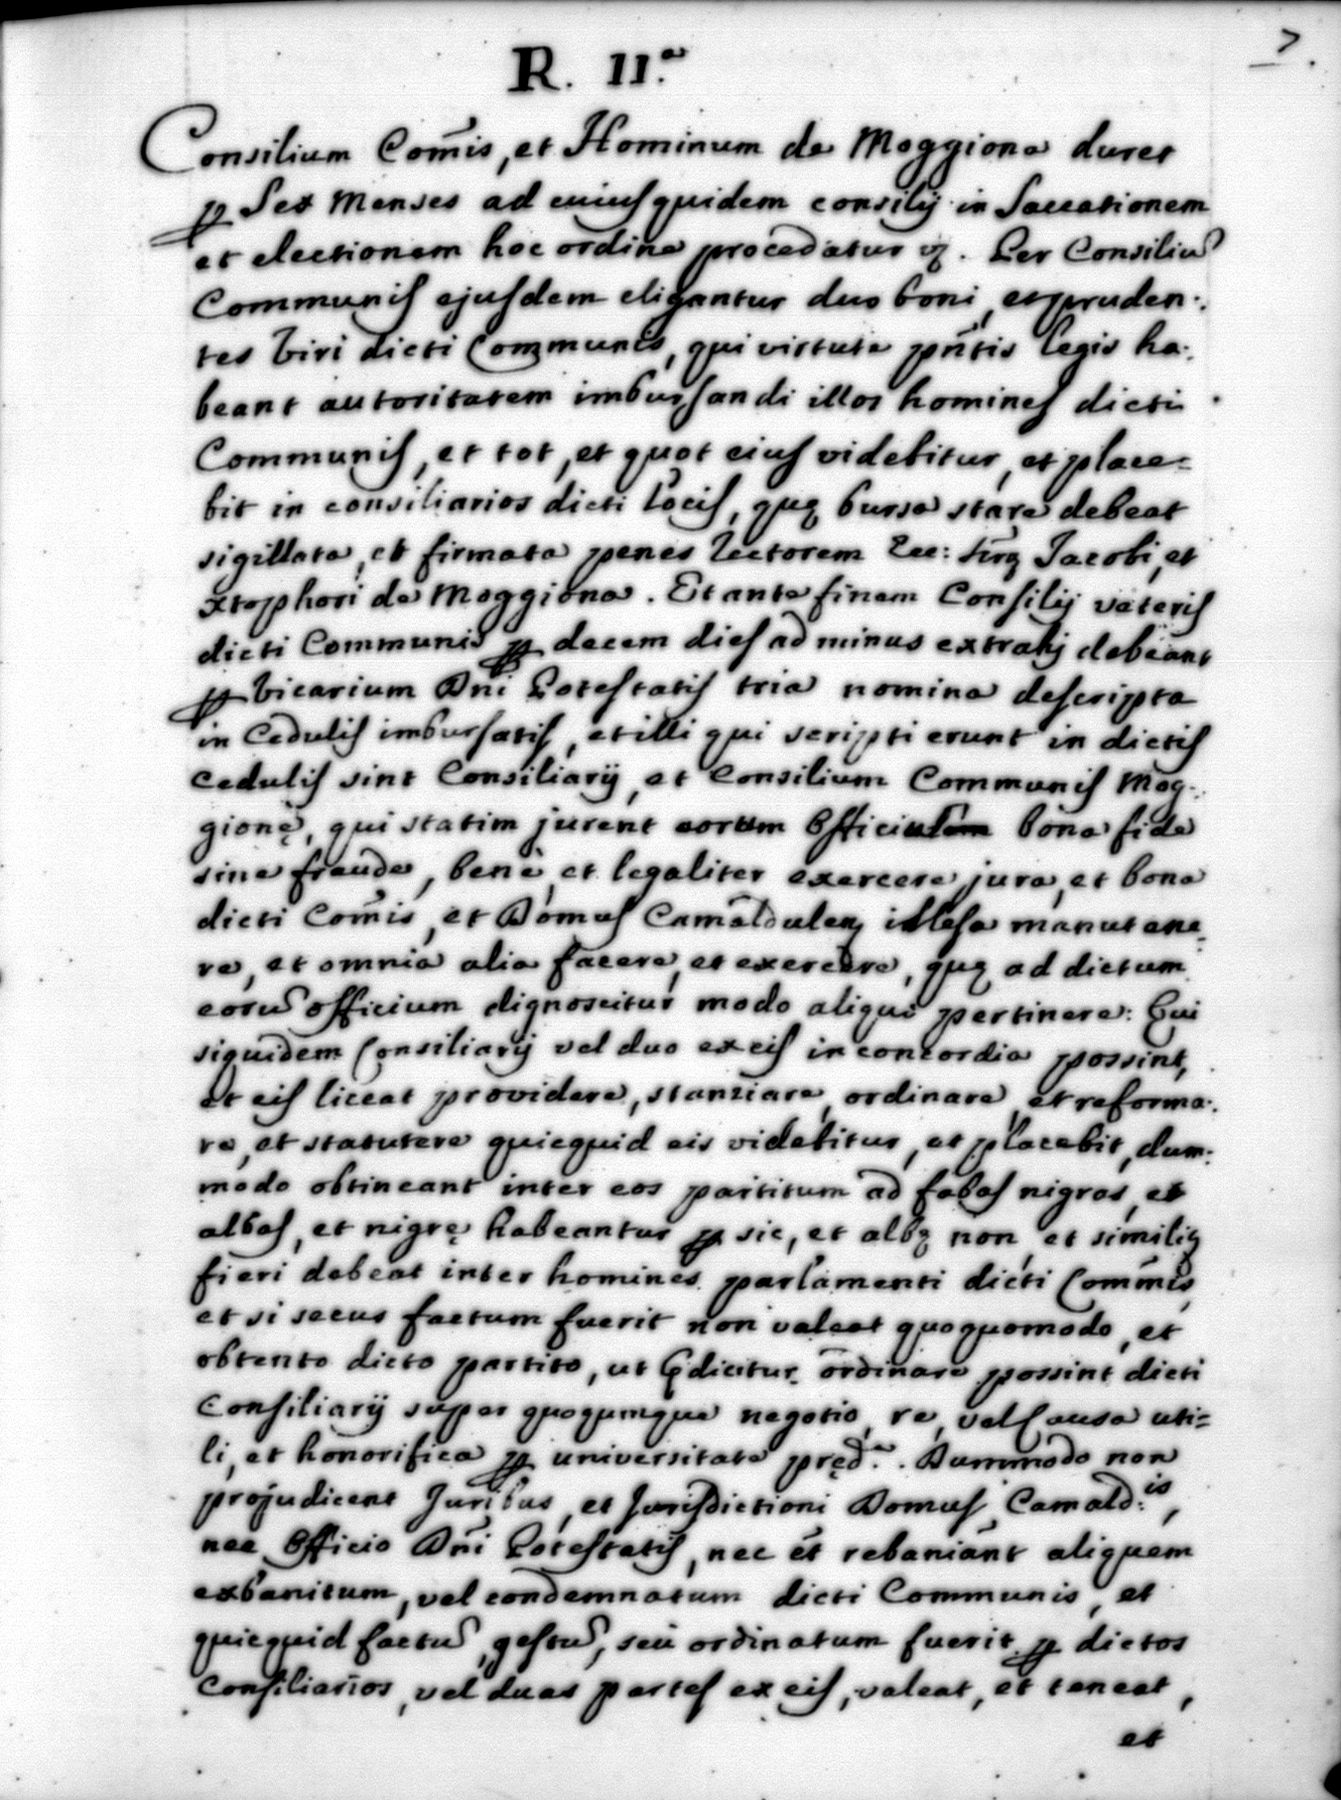 7
R. II.a
Consilium Com̃is, et Hominum de Moggiona duret
ꝑ Sex Menses ad cuiusquidem consilij in Saccationem
et electionem hoc ordine procedatur vz. Per Consiliu
Communis ejusdem eligantur duo boni, et pruden-
tes Viri dicti Communis, qui virtute pñtis legis ha-
beant autoritatem imbursandi illos homines dicti
Communis, et tot, et quot eius videbitur, et place=
bit in consiliarios dicti locis, quę bursa stare debeat
sigillata, et firmata penes Rectorem Ecc: Sirę Jacobi, et
Xtophori de Moggiona. Et ante finem Consilij veteris
dicti Communis ꝑ decem dies ad minus extrahj debeant
ꝑ Vicarium Dn̄i Potestatis tria nomina descripta
in Cedulis imbursatis, et illi qui scripti erunt in dictis
cedulis sint Consiliarij, et Consilium Communis Mog-
gionę, qui statim jurent eorum Officium bona fide
sine fraude, benè, et legaliter exercere jura, et bona
dicti Com̃is, et Domus Camaldulen illesa manutene=
re, et omnia alia facere, et exercere, quę ad dictum
eorũ officium dignoscitur modo aliquo pertinere: Qui
siquidem Consiliarij vel duo ex eis in concordia possint,
et eis liceat providere, stanziare, ordinare, et reforma-
re, et statutere quicquid eis videbitur, et placebit, dum-
modo obtineant inter eos partitum ad fabas nigras, et
albas, et nigrę habeantur ꝑ sic, et albę non, et similiꝫ
fieri debeat inter homines parlamenti dicti Com̃mis,
et si secus factum fuerit non valeat quoquomodo, et
obtento dicto partito, ut p̃dicitur ordinare possint dicti
Consiliarij super quoqumque negotio, re, vel causa uti=
li, et honorifica ꝑ universitate pręd.a. Dummodo non
prejudicent Juribus, et Jurisdictioni Domus Camald.is,
nec Officio Dn̄i Potestatis, nec et rebaniant aliquem
exbanitum, vel condemnatum dicti Communis, et
quicquid factũ, gestũ, seù ordinatum fuerit ꝑ dictos
Consiliarios, vel duas partes ex eis, valeat, et teneat,
et